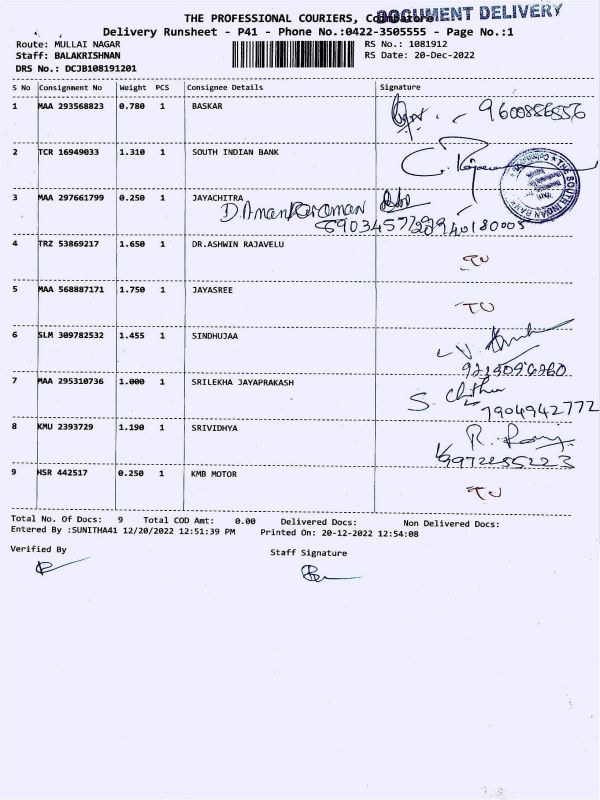 DOCUMENT DELIVERY
THE PROFESSIONAL COURIERS, Coimbatore
Delivery Runsheet - P41 - Phone No.:0422-3505555 - Page No.:1
Route: MULLAI NAGAR RS No.: 1081912
Staff: BALAKRISHNAN RS Date: 20-Dec-2022
DRS No.: DCJB108191201
S No Consignment No Weight PCS Consignee Details Signature
1 MAA 293568823 0.780 1 BASKAR
2 TCR 16949033 1.310 1 SOUTH INDIAN BANK
THE SOUTH INDIAN BANK
3 MAA 297661799 0.250 1 JAYACHITRA
4 TRZ 53869217 1.650 1 DR.ASHWIN RAJAVELU
5 MAA 568887171 1.750 1 JAYASREE
6 SLM 309782532 1.455 1 SINDHUJAA
7 MAA 295310736 1.000 1 SRILEKHA JAYAPRAKASH
S. Chithra
7904942772
8 KMU 2393729 1.190 1 SRIVIDHYA
9 HSR 442517 0.250 1 KMB MOTOR
Total No. Of Docs: 9 Total COD Amt: 0.00 Delivered Docs: Non Delivered Docs:
Entered By :SUNITHA41 12/20/2022 12:51:39 PM Printed On: 20-12-2022 12:54:08
Verified By Staff Signature